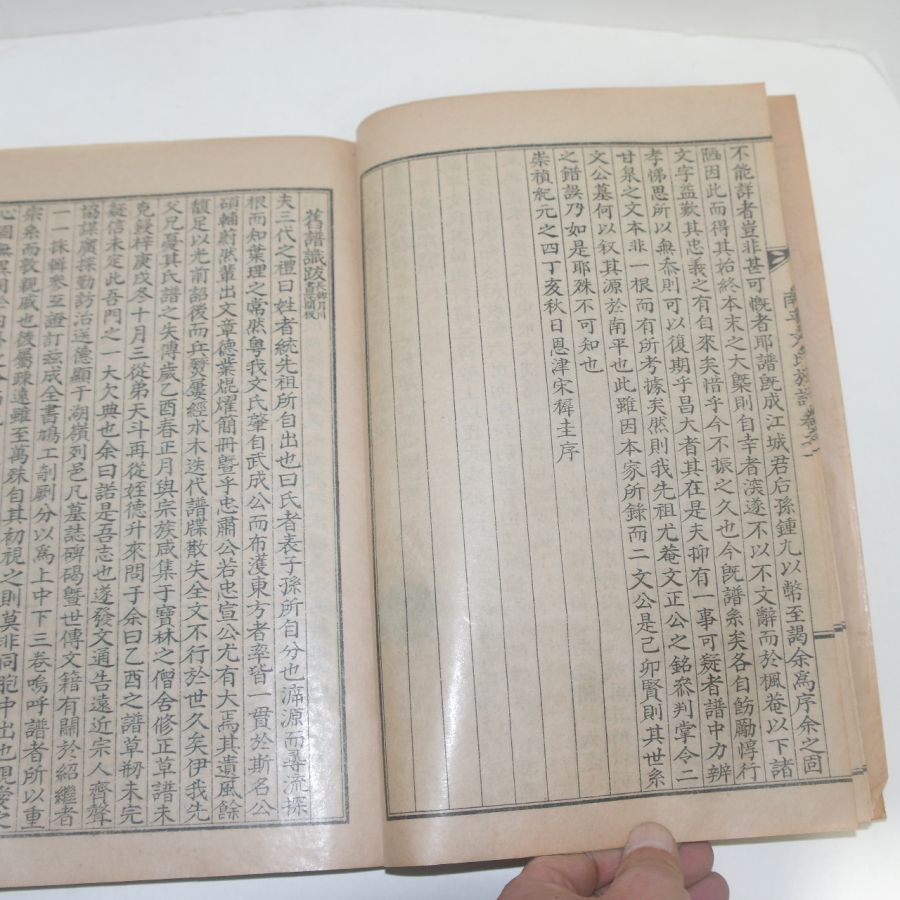 不能詳者豈非甚可慨者耶譜旣成江城君后孫鍾九以幣至謁余爲序余之固
陋因此而得其始終本末之大槩則自幸者滨遂不以不文辭而於楓菴以下諸
文字益歎其忠義之有自來矣惜乎今不振之久也今旣譜系矣各自飭勵惇行
孝悌思所以無忝則可以復期乎昌大者其在是夫抑有一事可疑者譜中力辨
甘泉之文本非一根而有所考據矣然則我先祖尤菴文正公之銘叅判掌令二
文公墓何以叙其源於南平也此雖因本家所錄而二文公是己卯賢則其世系
之錯誤乃如是耶殊不可知也
崇禎紀元之四丁亥秋日恩津宋樨圭序
舊譜識跋
夫三代之禮曰姓者統先祖所自出也曰氏者表子孫所自分也溯源而尋流探
根而知葉理之常然粤我文氏肇自武成公而布濩東方者率皆一貫於斯名公
碩輔蔚然輩出文章德業焜燿簡冊曁乎忠肅公若忠宣公尤有大焉其遺風餘
馥足以光前詔後而兵燹屢經水木迭代譜牒散失全文不行於世久矣伊我先
父兄憂其氏譜之失傳歲乙酉春正月與宗族咸集于寶林之僧舍修正草譜未
克鋟梓庚戌冬十月三從弟天斗再從姪德升來問于余曰乙酉之譜草刱未完
疑信未定此吾門之一大欠典也余曰諾是吾志也遂發文通告遠近宗人齊聲
協謀廣採勤訪治送德顯于湖嶺列邑凡墓誌碑碣曁世傳文籍有關於紹繼者
一一蒐輯參互證訂玆成全書鳩工剞劂分以爲上中下三卷嗚呼譜者所以重
宗系而敦親戚也彼屬踈遠雖至萬殊自其初視之則莫非同胞中出也